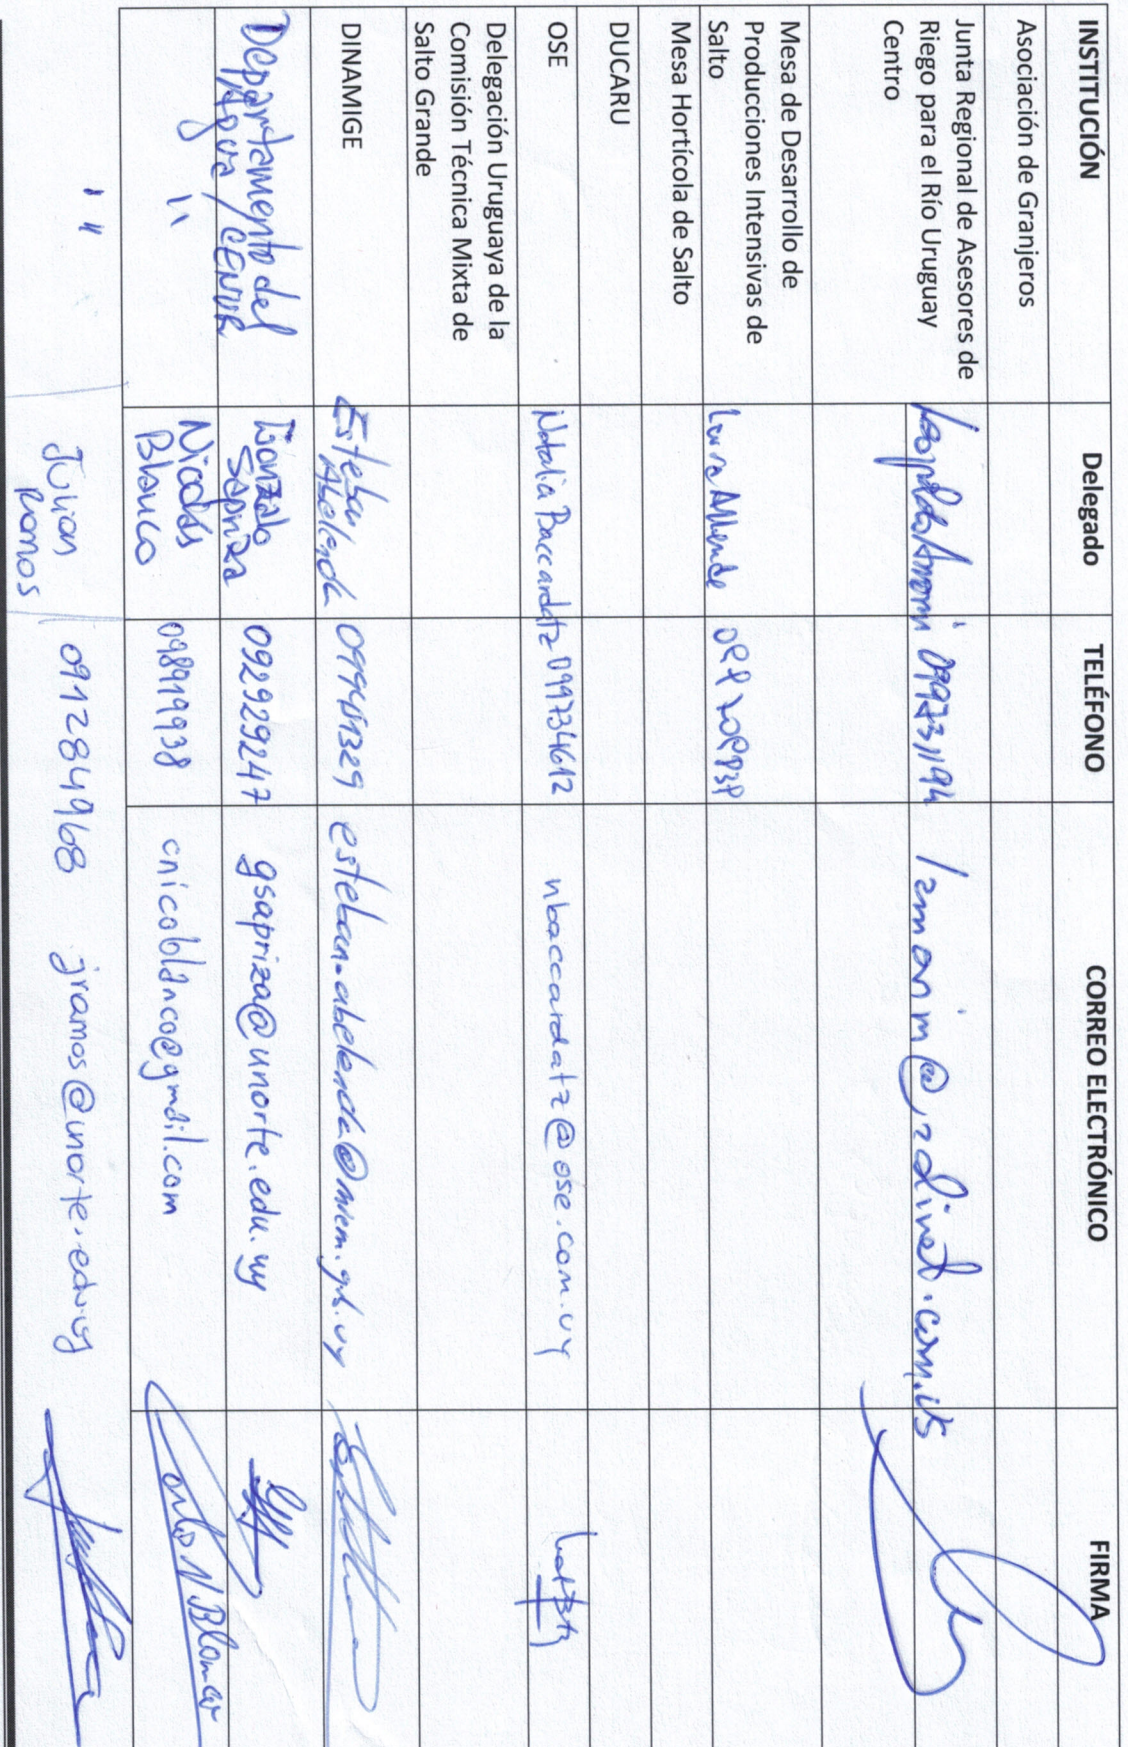 INSTITUCIÓN Delegado TELÉFONO CORREO ELECTRÓNICO FIRMA
Asociación de Granjeros
Junta Regional de Asesores de
Riego para el Río Uruguay
Centro
Mesa de Desarrollo de
Producciones Intensivas de
Salto
Laura Allende
Mesa Hortícola de Salto
DUCARU
OSE Natalia Baccardatz 099734612 nbaccardatz@ose.com.uy
Delegación Uruguaya de la
Comisión Técnica Mixta de
Salto Grande
DINAMIGE Esteban Abelenda esteban.abelenda@miem.gub.uy
Departamento del
Agua / CENUR
Gonzalo
Sapriza
092929247 gsapriza@unorte.edu.uy
" Nicolás
Blanco
098919938 cnicoblanco@gmail.com
" Julian
Ramos
091284968 jramos@unorte.edu.uy